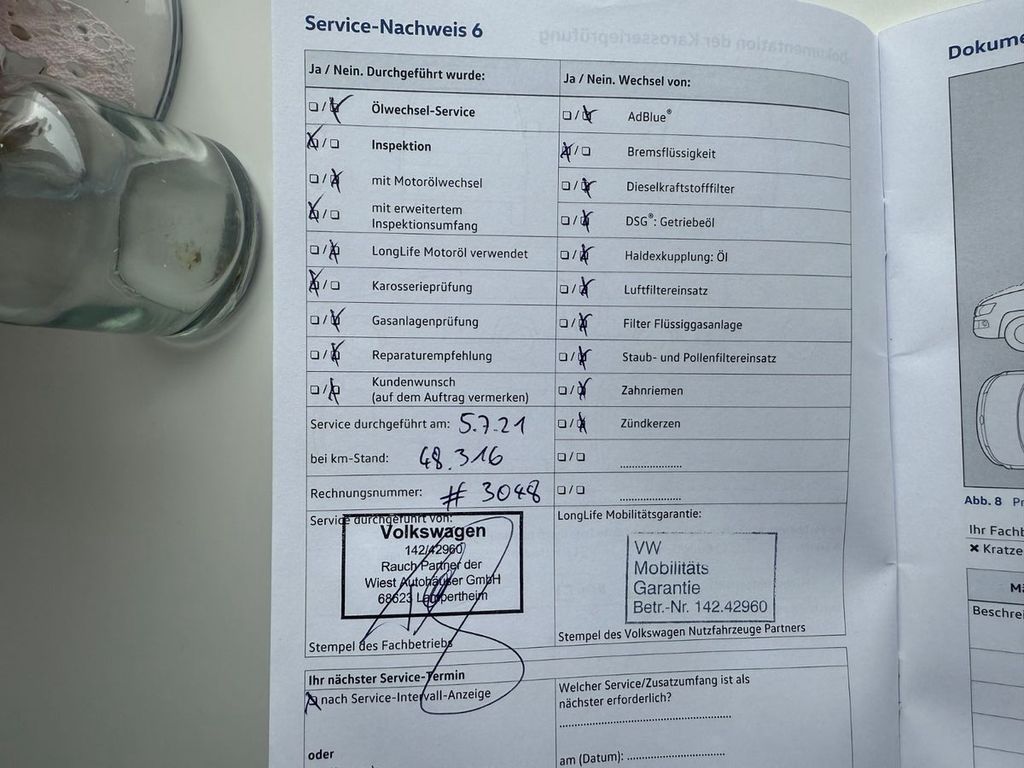 Service-Nachweis 6
Ja / Nein. Durchgeführt wurde:
❏ / ❏ Ölwechsel-Service
❏ / ❏ Inspektion
❏ / ❏ mit Motorölwechsel
❏ / ❏ mit erweitertem
Inspektionsumfang
❏ / ❏ LongLife Motoröl verwendet
❏ / ❏ Karosserieprüfung
❏ / ❏ Gasanlagenprüfung
❏ / ❏ Reparaturempfehlung
❏ / ❏ Kundenwunsch
(auf dem Auftrag vermerken)
Service durchgeführt am: 5.7.21
bei km-Stand: 48.316
Rechnungsnummer: # 3048
Service durchgeführt von:
Volkswagen
142/42960
Rauch Partner der
Wiest Autohäuser GmbH
68623 Lampertheim
Stempel des Fachbetriebs
Ja / Nein. Wechsel von:
❏ / ❏ AdBlue®
❏ / ❏ Bremsflüssigkeit
❏ / ❏ Dieselkraftstofffilter
❏ / ❏ DSG®: Getriebeöl
❏ / ❏ Haldexkupplung: Öl
❏ / ❏ Luftfiltereinsatz
❏ / ❏ Filter Flüssiggasanlage
❏ / ❏ Staub- und Pollenfiltereinsatz
❏ / ❏ Zahnriemen
❏ / ❏ Zündkerzen
❏ / ❏ ....................
❏ / ❏ ....................
LongLife Mobilitätsgarantie:
VW
Mobilitäts
Garantie
Betr.-Nr. 142.42960
Stempel des Volkswagen Nutzfahrzeuge Partners
Ihr nächster Service-Termin
❏ nach Service-Intervall-Anzeige
oder
Welcher Service/Zusatzumfang ist als
nächster erforderlich?
am (Datum): ....................
Dokume
Abb. 8 Pr
Ihr Fachb
✖ Kratze
Mä
Beschrei